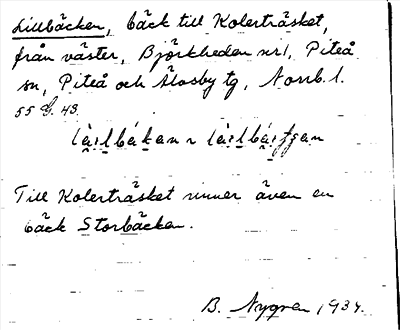 Lillbäcken, bäck till Kolerträsket,
från väster, Björkheden nr 1, Piteå
sn, Piteå och Älvsby tg, Norrb. l.
55 43.
Till Kolerträsket rinner även en
bäck Storbäcken.
B. Nygren 1934.